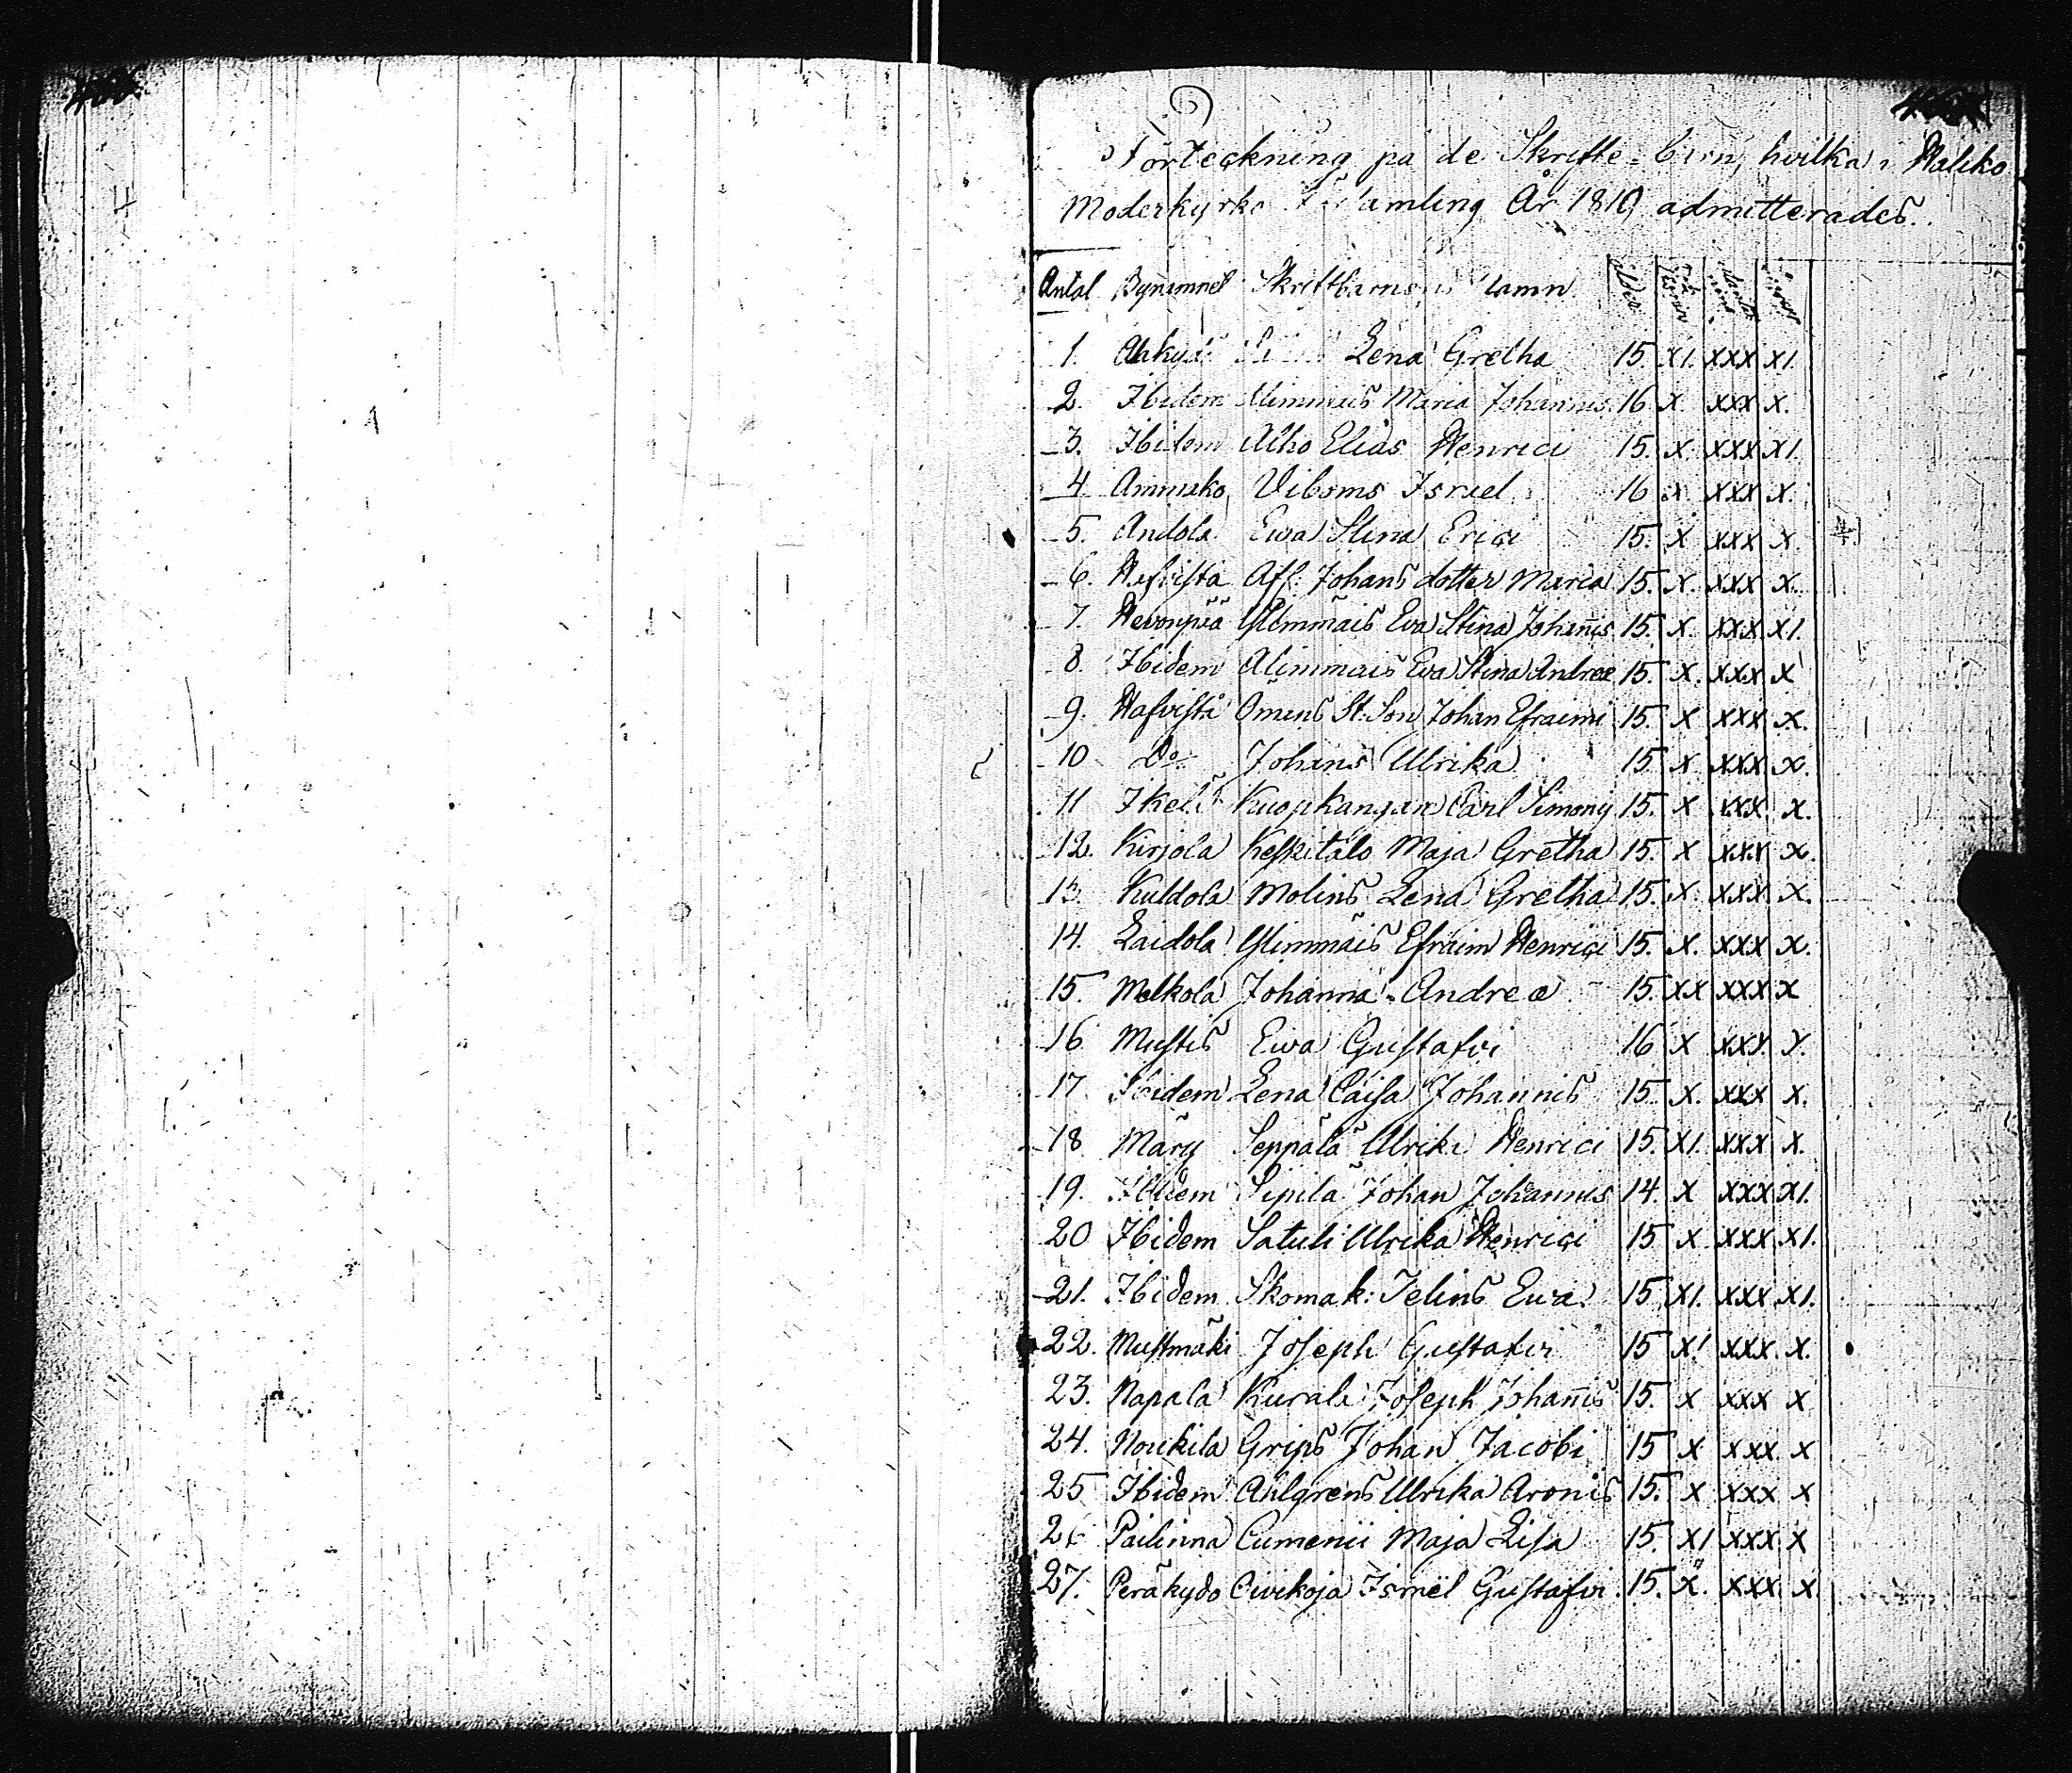 Förteckning på de Skrifte-barn, hvilka i Haliko
Moderkyrko Församling År 1810 admitterades.
Antal Bynamnet Skriftbarnens namn ålder
1. Lena Gretha 15. XI. XXX XI.
2. Ibidem Maria Johannis 16 X XXX X.
3. Ibidem Alho Elias Henrici 15. X XXX XI.
4 Ammisko Viboms Israel 16 X XXX X.
5. Andola Ewa Stina Erici 15. X XXX X.
6. Afl. Johans dotter Maria 15. X. XXX X.
7. Hevonpää Eva Stina Johañis 15. X. XXX XI.
8. Ibidem Eva Stina Andreæ 15. X. XXX X
9. Hafvistä Omens St. Son Johan Efraimi 15. X XXX X.
10 Do Johans Ulrika 15 X XXX X.
11 Carl Simonij 15. X XXX. X.
12. Kirjola Keskitalo Maja Gretha 15. X XXX X.
13. Kuldola Molins Lena Gretha 15. X. XXX. X.
14. Laidola Efraim Henrici 15. X. XXX X.
15. Melkola Johanna Andreæ 15. XX XXX X
16 Mustis Ewa Gustafvi 16 X XXX. X.
17. Ibidem Lena Caisa Johannis 15. X. XXX X.
18 Märy Seppälä Ulrika Henrici 15. XI. XXX X.
19. Ibidem Sipilä Johan Johannis 14. X XXX XI.
20 Ibidem Satuli Ulrika Henrici 15 X XXX XI.
21. Ibidem Skomak: Telins Eva 15 XI. XXX XI.
22. Mustmäki Joseph Gustafvi 15 XI XXX. X.
23. Napala Kurala Joseph Johañis 15. X XXX X
24. Noukila Grips Johan Jacobi 15 X XXX. X
25 Ibidem Ahlgrens Ulrika Aronis 15. X XXX X
26 Pailinna Cumenii Maja Lisa 15. XI XXX X
27. Peräkydö Israel Gustafvi. 15. X. XXX X.